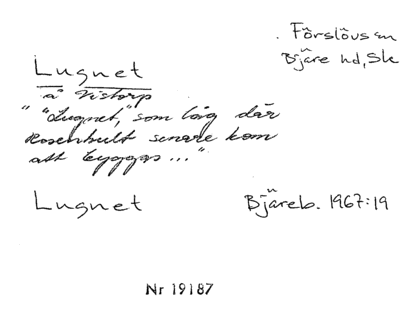 Förslövs sn
Bjäre hd, Sk
Lugnet
å Vistorp
" "Lugnet," som låg där
Rosenhult senare kom
att byggas..."
Lugnet
Bjäreb. 1967:19
Nr 19187